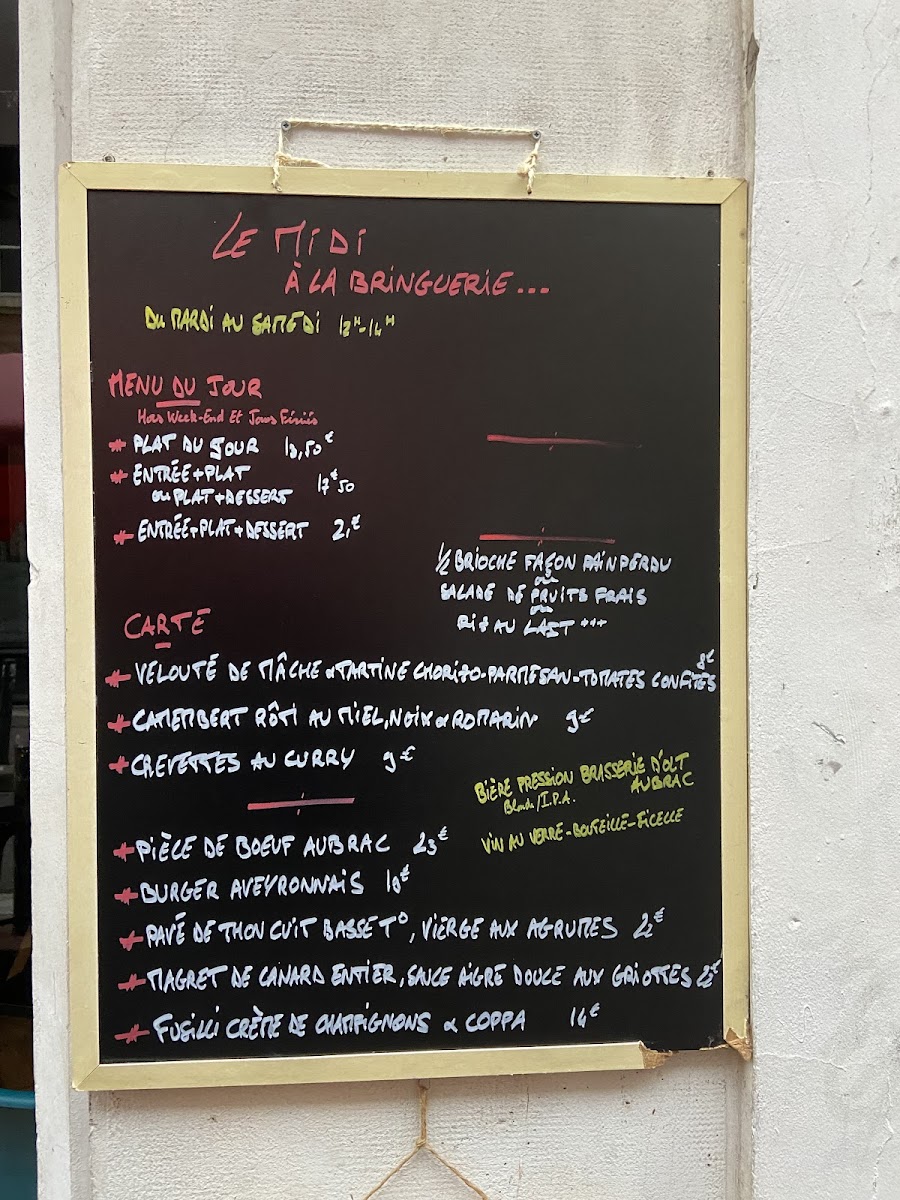 LE MIDI
À LA BRINGUERIE...
DU MARDI AU SAMEDI 12H-14H
MENU DU JOUR
Hors Week-End Et Jours Fériés
PLAT DU JOUR 13,50€
ENTRÉE+PLAT
ou PLAT+DESSERT 17€50
ENTRÉE+PLAT+DESSERT
1/2 BRIOCHE FAÇON PAIN PERDU
ou
SALADE DE FRUITS FRAIS
ou
RIZ AU LAST +++
CARTE
VELOUTÉ DE MÂCHE & TARTINE CHORIZO-PARMESAN-TOMATES CONFITES 8€
CAMEMBERT RÔTI AU MIEL, NOIX & ROMARIN 9€
CREVETTES AU CURRY 9€
BIÈRE PRESSION BRASSERIE D'OLT
AUBRAC
Blonde/I.P.A.
VIN AU VERRE-BOUTEILLE-FICELLE
PIÈCE DE BOEUF AUBRAC 23€
BURGER AVEYRONNAIS
PAVÉ DE THON CUIT BASSE T°, VIERGE AUX AGRUMES
MAGRET DE CANARD ENTIER, SAUCE AIGRE DOUCE AUX GRIOTTES
FUSILLI CRÈME DE CHAMPIGNONS & COPPA 14€